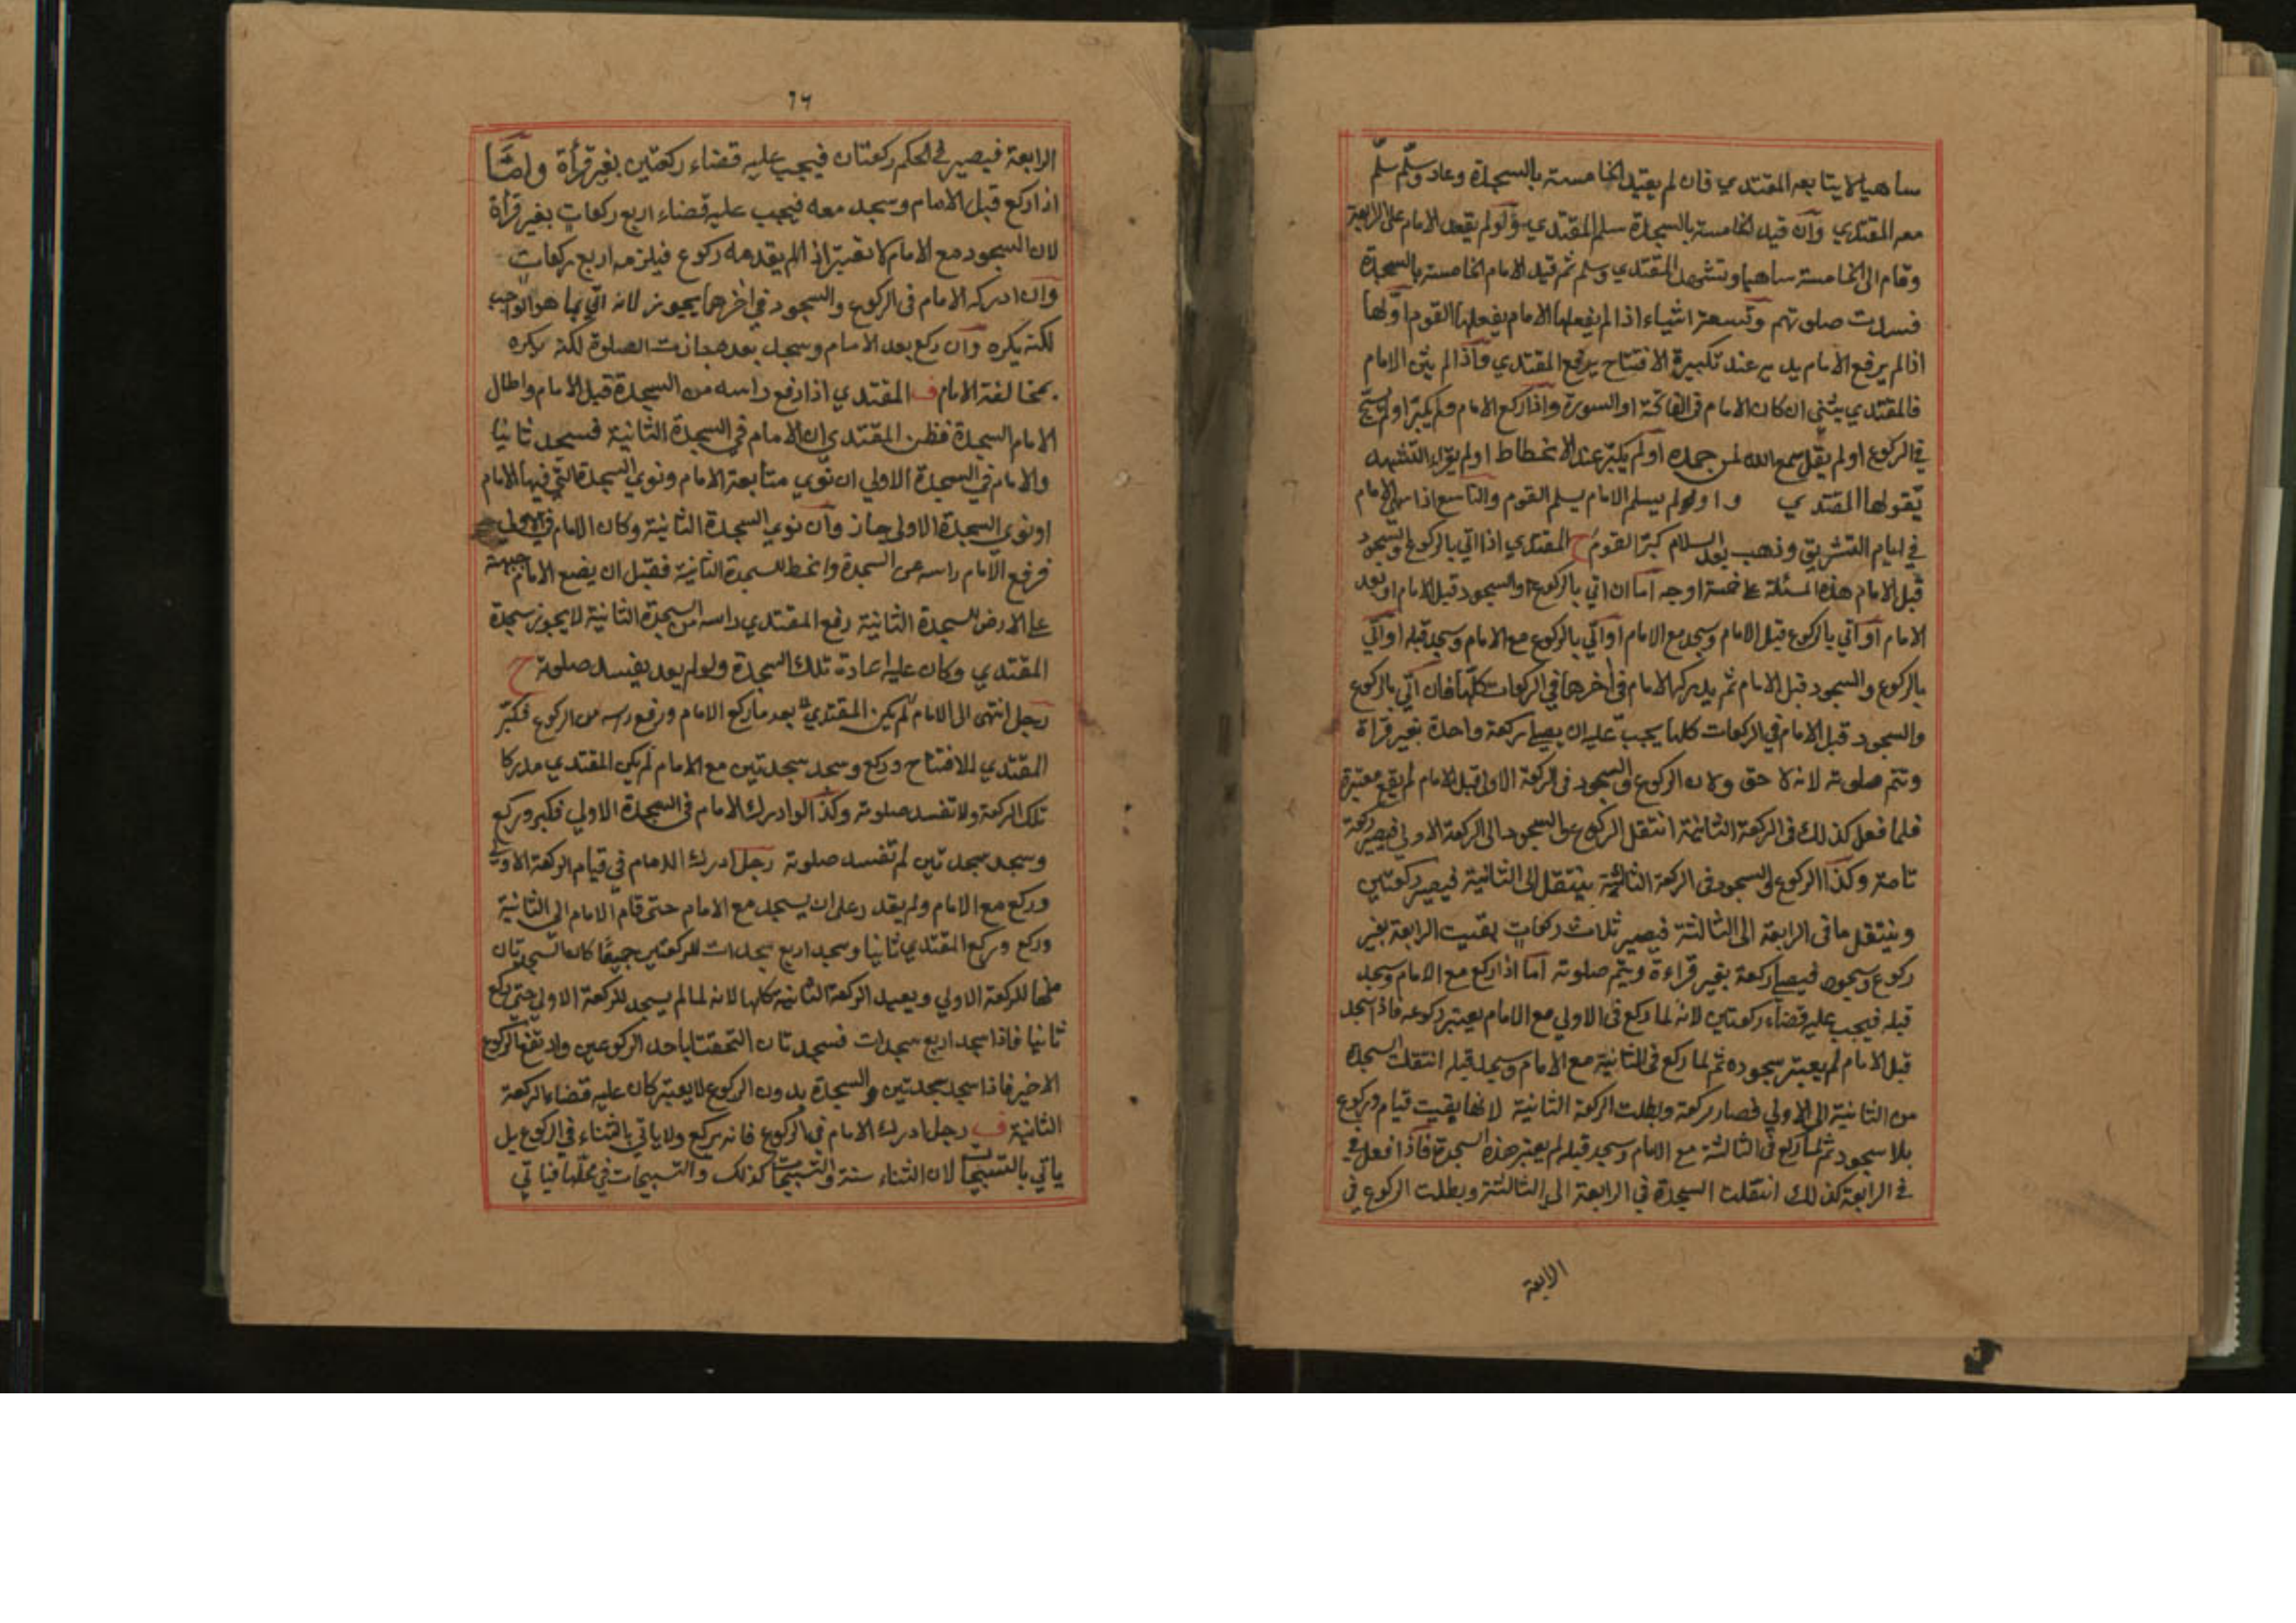 ساهيا لا يتابعه المقتدي فان لم يقيد الخامسة بالسجدة وعاد وسلّم سلّم
معه المقتدي وان قيد الخامسة بالسجدة سلم المقتدي ولو لم يقعد الامام على الرابعة
وقام الى الخامسة ساهيا وتشهد المقتدي وسلم ثم قيد الامام الخامسة بالسجدة
فسدت صلوتهم وتسعة اشياء اذا لم يفعلها الامام يفعلها القوم اولها
اذا لم يرفع الامام يديه عند تكبيرة الافتتاح يرفع المقتدي واذا لم يثن الامام
فالمقتدي يثنى ان كان الامام في الفاتحة او السورة واذا ركع الامام ولم يكبر او لم يسبح
في الركوع او لم يقل سمع الله لمن حمده او لم يكبر عند الانحطاط او لم يقراء التشهد
يقولها المقتدي و او لو لم يسلم الامام يسلم القوم والتاسع اذا سهى الامام
في ايام التشريق وذهب بعد السلام كبر القوم ح المقتدي اذا اتي بالركوع والسجود
قبل الامام هذه المسئلة على خمسة اوجه اما ان اتي بالركوع والسجود قبل الامام او بعد
الامام او اتي بالركوع قبل الامام وسجد مع الامام او اتي بالركوع مع الامام وسجد قبله او اتي
بالركوع والسجود قبل الامام ثم يدركه الامام في اخرهما في الركعات كلها فان اتي بالركوع
والسجود قبل الامام في الركعات كلها يجب عليه ان يصلي ركعة واحدة بغير قراة
وتتم صلوته لانه لاحق ولان الركوع والسجود في الركعة الاولى قبل الامام لم يقع معتبرة
فلما فعل كذلك في الركعة الثانية انتقل الركوع والسجود الى الركعة الاولى فيصير ركعة
تامة وكذا الركوع والسجود في الركعة الثالثة ينتقل الى الثانية فيصير ركعتين
وينتقل ما في الرابعة الى الثالثة فيصير ثلاث ركعات بقيت الرابعة بغير
ركوع وسجود فيصلي ركعة بغير قراءة ويتم صلوته اما اذا ركع مع الامام وسجد
قبله فيجب عليه قضاء ركعتين لانه لما ركع في الاولي مع الامام يعتبر ركوعه فاذا سجد
قبل الامام لم يعتبر سجوده ثم لما ركع في الثانية مع الامام وسجد قبله انتقلت السجدة
من الثانية الى الاولي فصار ركعة وبطلت الركعة الثانية لانها بقيت قيام وركوع
بلا سجود ثم لما ركع في الثالثة مع الامام وسجد قبله لم يعتبر هذه السجدة فاذا فعل في
في الرابعة كذلك انتقلت السجدة في الرابعة الى الثالثة وبطلت الركوع في
الرابعة
١٦
الرابعة فيصير في الحكم ركعتان فيجب عليه قضاء ركعتين بغير قرأة وامّا
اذا ركع قبل الامام وسجد معه فيجب عليه قضاء اربع ركعات بغير قرأة
لان السجود مع الامام لا تعتبر اذا لم يقدمه ركوع فيلزمه اربع ركعات
وان ادركه الامام في الركوع والسجود في اخرهما يجوز لانه اتي بما هو الواجب
لكنه يكره وان ركع بعد الامام وسجد بعده جازت الصلوة لكنه يكره
بمخالفة الامام ف المقتدي اذا رفع راسه من السجدة قبل الامام واطال
الامام السجدة فظن المقتدي ان الامام في السجدة الثانية فسجد ثانيا
والامام في السجدة الاولي ان نوي متابعة الامام ونوي السجدة التي فيها الامام
او نوي السجدة الاولى جاز وان نوي السجدة الثانية وكان الامام في الاولي
فرفع الامام راسه عن السجدة وانحط للسجدة الثانية فقبل ان يضع الامام جبهته
على الارض للسجدة الثانية رفع المقتدي راسه من السجدة الثانية لا يجوز سجدة
المقتدي وكان عليه اعادة تلك السجدة ولو لم يعد يفسد صلوته ح
رجل انتهى الى الامام لم يكبر المقتدي بعد ما ركع الامام ورفع رسه من الركوع فكبر
المقتدي للافتتاح وركع وسجد سجدتين مع الامام لم يكن المقتدي مدركا
تلك الركعة ولا تفسد صلوته وكذا لو ادرك الامام في السجدة الاولي فكبر وركع
وسجد سجدتين لم تفسد صلوته رجل ادرك الامام في قيام الركعة الاولى
وركع مع الامام ولم يقدر على ان يسجد مع الامام حتى قام الامام الى الثانية
وركع وركع المقتدي ثانيا وسجد اربع سجدات للركعتين جميعًا كان السجدتان
منها للركعة الاولي ويعيد الركعة الثانية كلها لانه لما لم يسجد للركعة الاولى حتى ركع
ثانيا فاذا سجد اربع سجدات فسجدتان التحقتا باحد الركوعين وارتفض الركوع
الاخير فاذا سجد سجدتين والسجدة بدون الركوع لا يعتبر كان عليه قضاء الركعة
الثانية ف رجل ادرك الامام في الركوع فانه يركع ولا ياتي بالثناء في الركوع بل
ياتي بالتسبيحات لان الثناء سنة والتسبيحات كذلك والتسبيحات في محلها فياتي